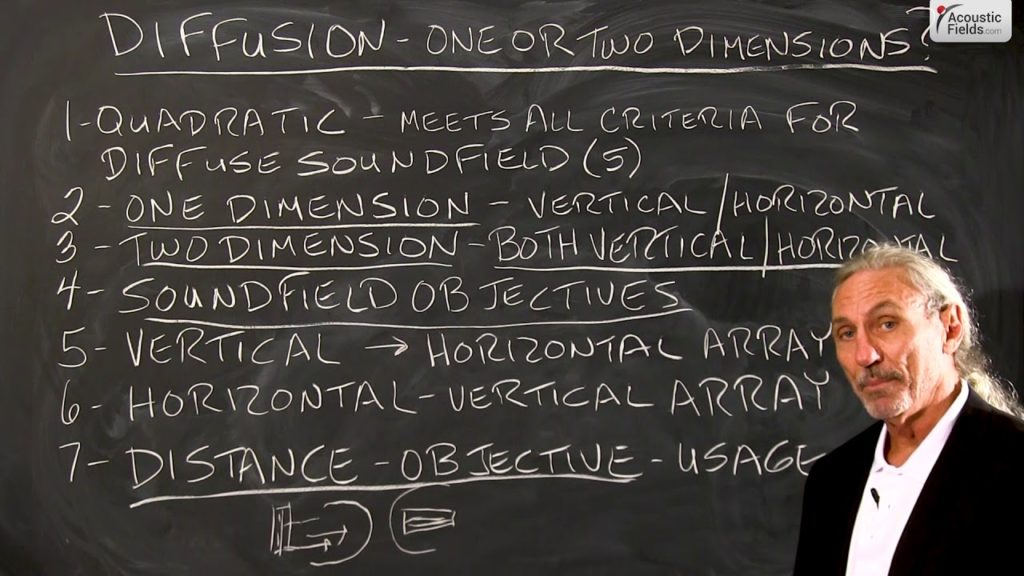 DIFFUSION - ONE OR TWO DIMENSIONS?
Acoustic
Fields.com
1-QUADRATIC - MEETS ALL CRITERIA FOR
DIFFUSE SOUNDFIELD (5)
2 - ONE DIMENSION - VERTICAL/HORIZONTAL
3 - TWO DIMENSION - BOTH VERTICAL/HORIZONTAL
4 - SOUNDFIELD OBJECTIVES
5 - VERTICAL → HORIZONTAL ARRAY
6 - HORIZONTAL-VERTICAL ARRAY
7 - DISTANCE - OBJECTIVE - USAGE